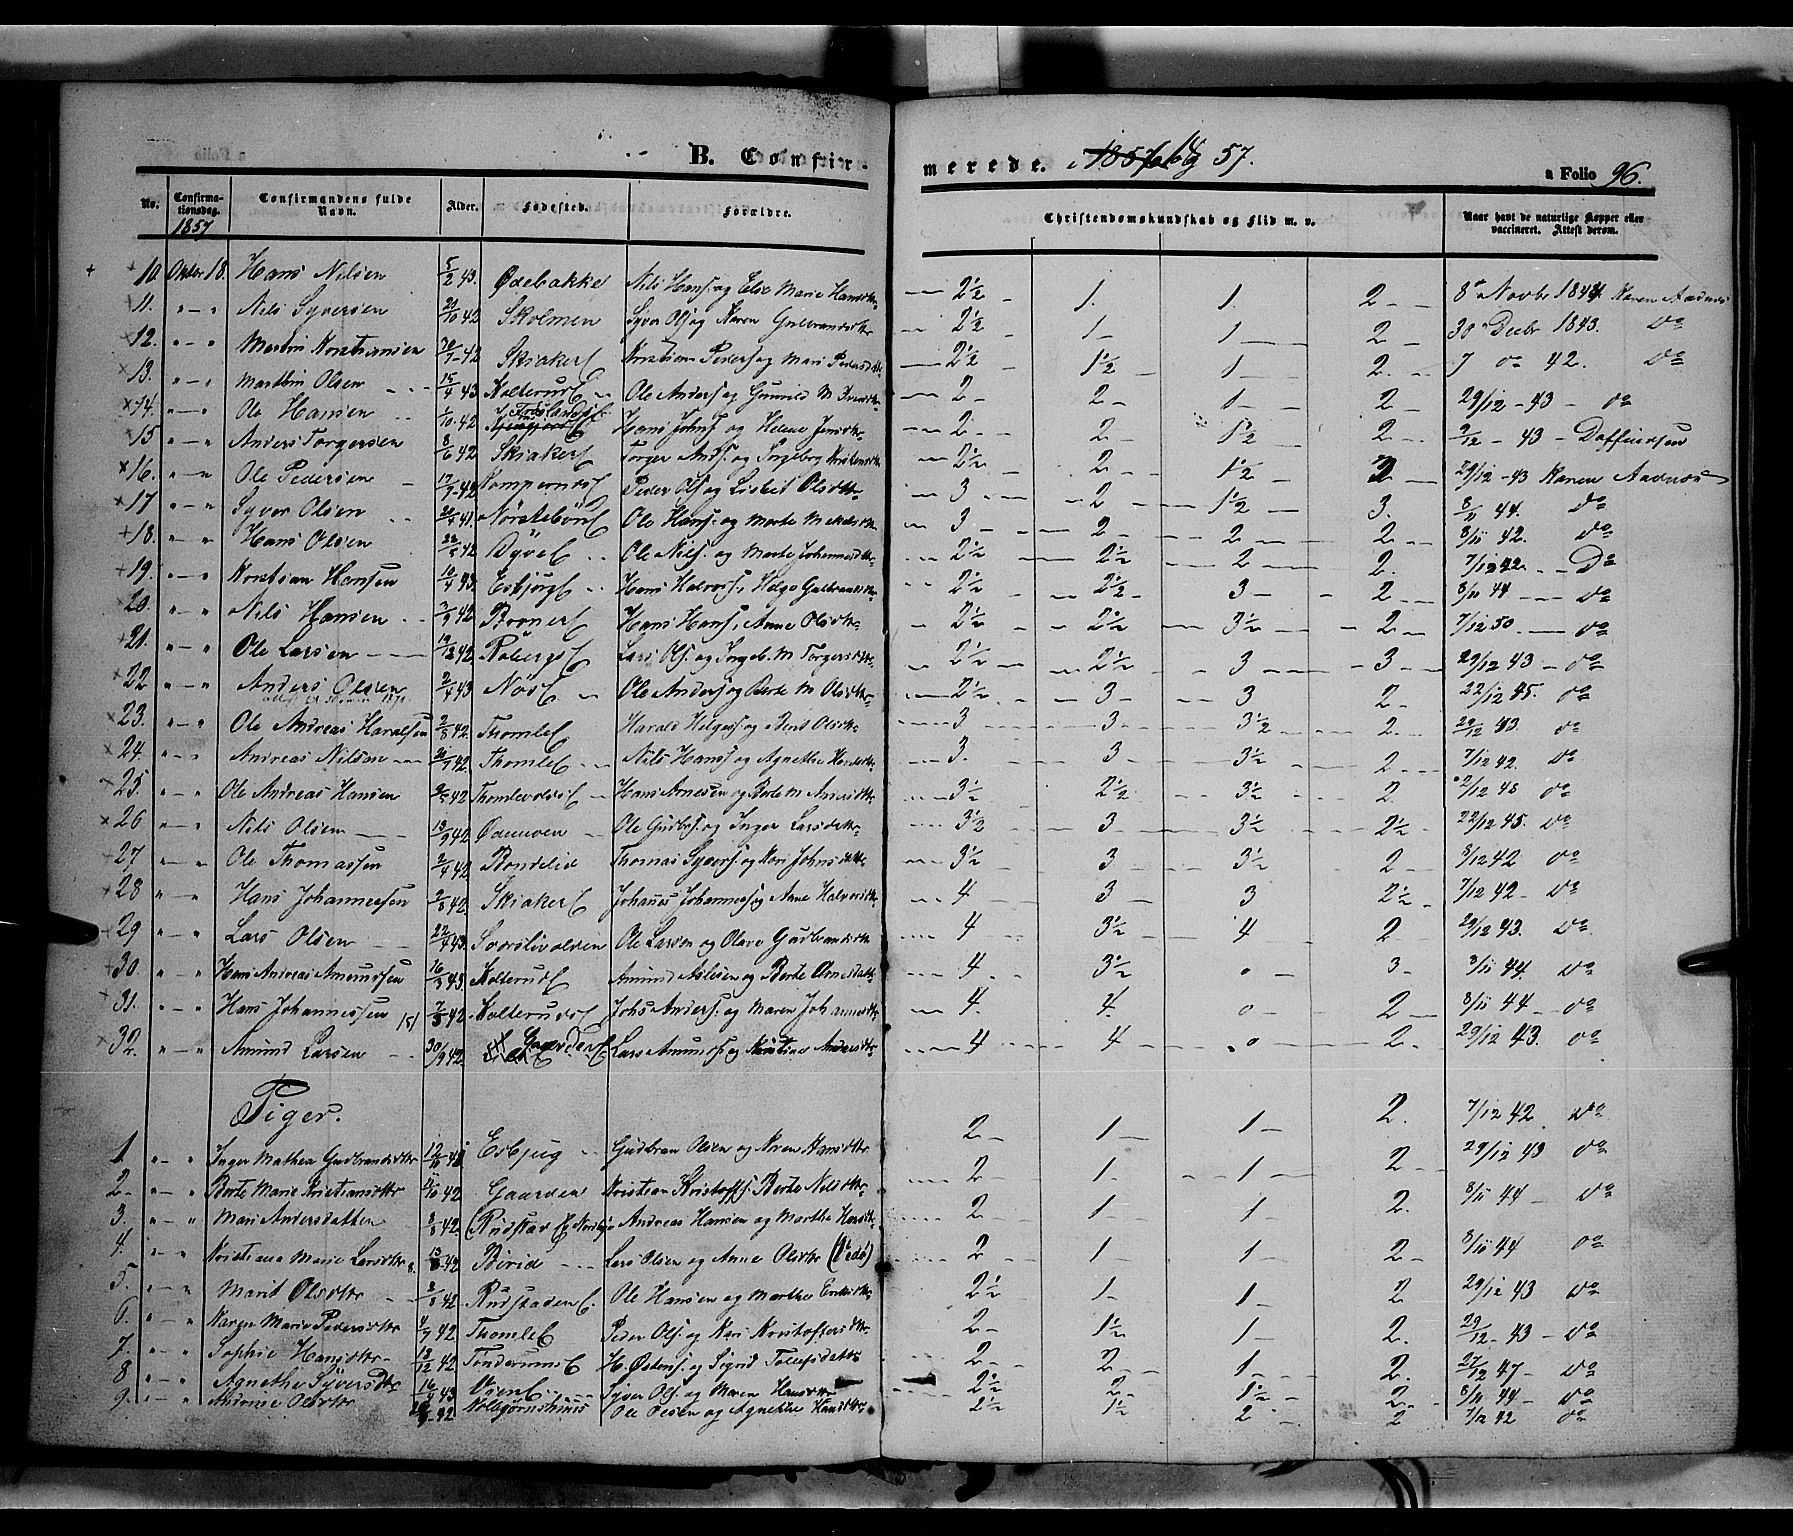 B. Confir-
merede. 1856 og 57.
a Folio 96.
No. Confirmationsdag. 1857 Confirmandens fulde Navn. Alder. Fødested. Forældre. Christendomskundskab og Flid m. v. Naar havt de naturlige Kopper eller vaccineret. Attest derom.
10. Oktbr 18. Hans Nilsen 5/2 43. Ødebakke Nils Hans. og Else Marie Hansdtr 2½ 1. 1. 2 8de Novbr 1844. Karen Aadnes
11. " - " Nils Syversen 21/10 42 Skolmen Syver Ols. og Karen Gulbrandsdtr 2½ 1 1 2 30 Decbr 1843. do
12. " - " Martin Kristiansen 42 Skiaker E Kristian Peders. og Mari Pedersdtr 2½ 1½ 1 2 7 do 42. do
13. " - " Marthin Olsen 15/4 43 Kolterud E Ole Anders. og Gunnild M. 2 2 1 2 29/12 - 43 - do
14. " - " Ole Hansen 1/10 42 Hans Johns. og Helene Jensdtr 2 2 1½ 2 9/12 - 43 - Doffinssen
15 " - " Anders Torgersen 8/6 42 Skiaker E Torger And. og Ingeborg Kristensdtr 2½ 2 1½ 2 29/12 - 43 Karen Aadnes
16. " - " Ole Pedersen 17/9 42 Kompernd E Peder Ols. og Lisbet Olsdtr 3 2 1½ 3. 8/11 44. do
17 " - " Syver Olsen 41. Nørstebøn E Ole Hans. og Marte 3 2 2 2 8/11 42. do
18. " - " Hans Olsen 23/5 42 Dyve E Ole Nils. og Marte Johannesdtr 2½ 2½ 2 2. 7/12 42. Do
19. " - " Kristian Hansen 10/4 43. Esbjug E Hans Halvors. Helge Gulbrandsdtr 2½ 2½ 3 2 8/11 44 do
20. " - " Nils Hansen 3/9 42 Broner E Hans Hans. Anne Olsdtr 2½ 2½ 3½ 2 7/12 50 do
21. " - " Ole Larsen 19/12 42. Røbergs E Lars Ols. og Ingeb. M Torgersdtr 2½ 2½ 3 3 29/12 43 - do
22 " - " Anders Olsen 2/4 43 Nøss E Ole Anders. og Berte M Olsdtr 2½ 3 3 2 22/12 45. do
23. " - " Ole Andreas Haralsen 2/5 42. Thomle E Harald Helges. og Berit Olsdtr 3 3 3½ 2 29/12 43 do
24. " - " Andreas Nilsen 42. Thomle E Nils Hans. og Agnethe 3. 3 3½ 2 7/12 42. do
25. " - " Ole Andreas Hansen 42 Thomlevolds E Hans Arnesen og Berte M. Andersdtr 3½ 2½ 3½ 2. 2/12 43 do
26 " - " Nils Olsen 13/9 42. Ødemoen Ole Gudbs. og Inger Larsdatter 3½ 3 3½ 2½ 22/12 45. do
27 " - " Ole Thomassen 2/4 42. Bondelie Thomas Syvers. og Kari Johnsdatter 3½ 3 3½ 2 8/12 42 do
28 " " Hans Johannessen 2/8 42. Skiaker E Johanes Johanness. og Anne Halvorsdtr 4 3 3 2½ 7/12 42 - do
29 " " Lars Olsen 22/4 43. Svarslivolden Ole Larsen og Olave Gudbrandsdtr 4 3½ 4 2 29/12 43. do
30. " " Hans Andreas Amundsen 16/3 43. Kolterud E Amund Aslesen og Berte Arnesdatt 4 3½ 0 3 8/11 44. do
31. " " Hans Johannessen 7/3 42. Kolterud E Johs Anders. og Maren Johannesdtr 4. 4. 0 2 8/11 44 - do
32. " " Amund Larsen 30/9 42. Gaarden E Lars Amunds. og Kristine Andersdtr 4 4 0 2. 29/12 43. do
Piger.
1 " " Inger Mathea Gudbrandsdtr 12/10 41 Esbjug Gudbran Olsen og Karen Hansdtr 2 1 1 2. 7/12 42. do
2. " - " Berte Marie Kristiansdtr 42 Gaarden Kristian Kristoffs. Berte Nilsdtr 2 1 1 2 29/12 43 do
3. " - " Mari Andersdatter 8/8 42. Rudstad E Andreas Hansen og Marthe Hansdtr 2 1 1 2. 8/11 44 do
4. " " Kristiane Marie Larsdtr 13/8 42 Birid Lars Olsen og Anne Olsdtr 2 1 1 2 8/11 44 do
5. " - " Marit Olsdtr 2/8 42 Rudstaden E. Ole Hansen og Marthe Eriksdtr 2½ 1 1 2 29/12 43 do
6. " - " Karen Marie Pedersdtr 4/7 42. Thomle E Peder Ols. og Kari Kristoffersdtr 2 1½ 1 2. 29/12 - 43 - do
7. " - " Sophie Hansdtr 13/12 42 H. Østens. og Sigrid Tollefsdatter 2 2 1 2. 27/12 47 - do
8 " - " Agnethe Syversdtr 16/4 43. Vien E Syver Ols. og Maren Hansdtr 2½ 2 1½ 2 8/11 44 - do
9. " " Andrine Olsdtr 42 Ole Olsen og Agnethe Hansdtr 2½ 1½ 2 2 7/12 42 do